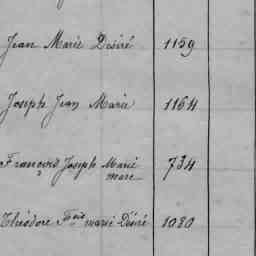 Jean Marie Désiré 1159
Joseph Jean Marie 1164
François Joseph Marie 734
marc
Théodore Fçois marie Désiré 1080